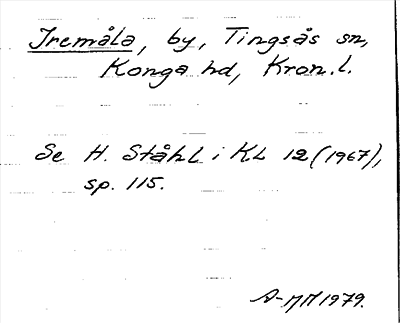 Iremåla, by, Tingsås sn,
Konga hd, Kron.l.
Se H. Ståhl i KL 12 (1967),
sp. 115.
A-MM 1979.